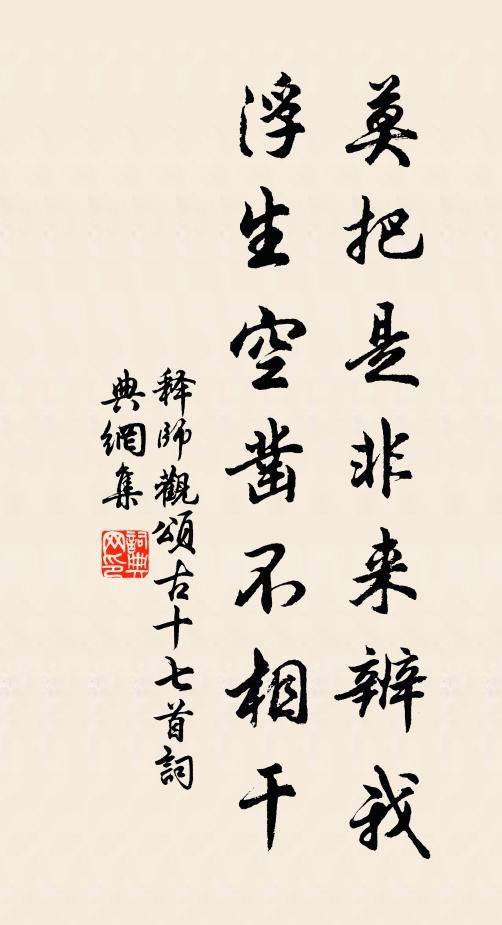 莫把是非来辨我
浮生空凿不相干
释師觀頌古十七首詞
典網集
詞典网印